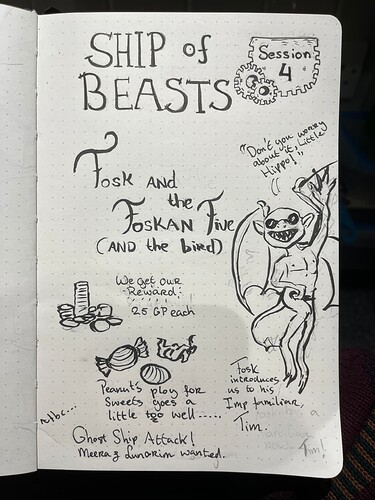 SHIP of
BEASTS
Session
4
"Don't you worry
about it, Little
Hippo!"
Tosk AND
the
Foskan Five
(AND the bird)
We get our
Reward:
25 GP each
Peanuts ploy for
Sweets goes a
little too well......
Tosk
introduces
us to his
Imp familiar,
Tim.
Ghost Ship Attack!
Meera & Lunarim wanted.
Tim!